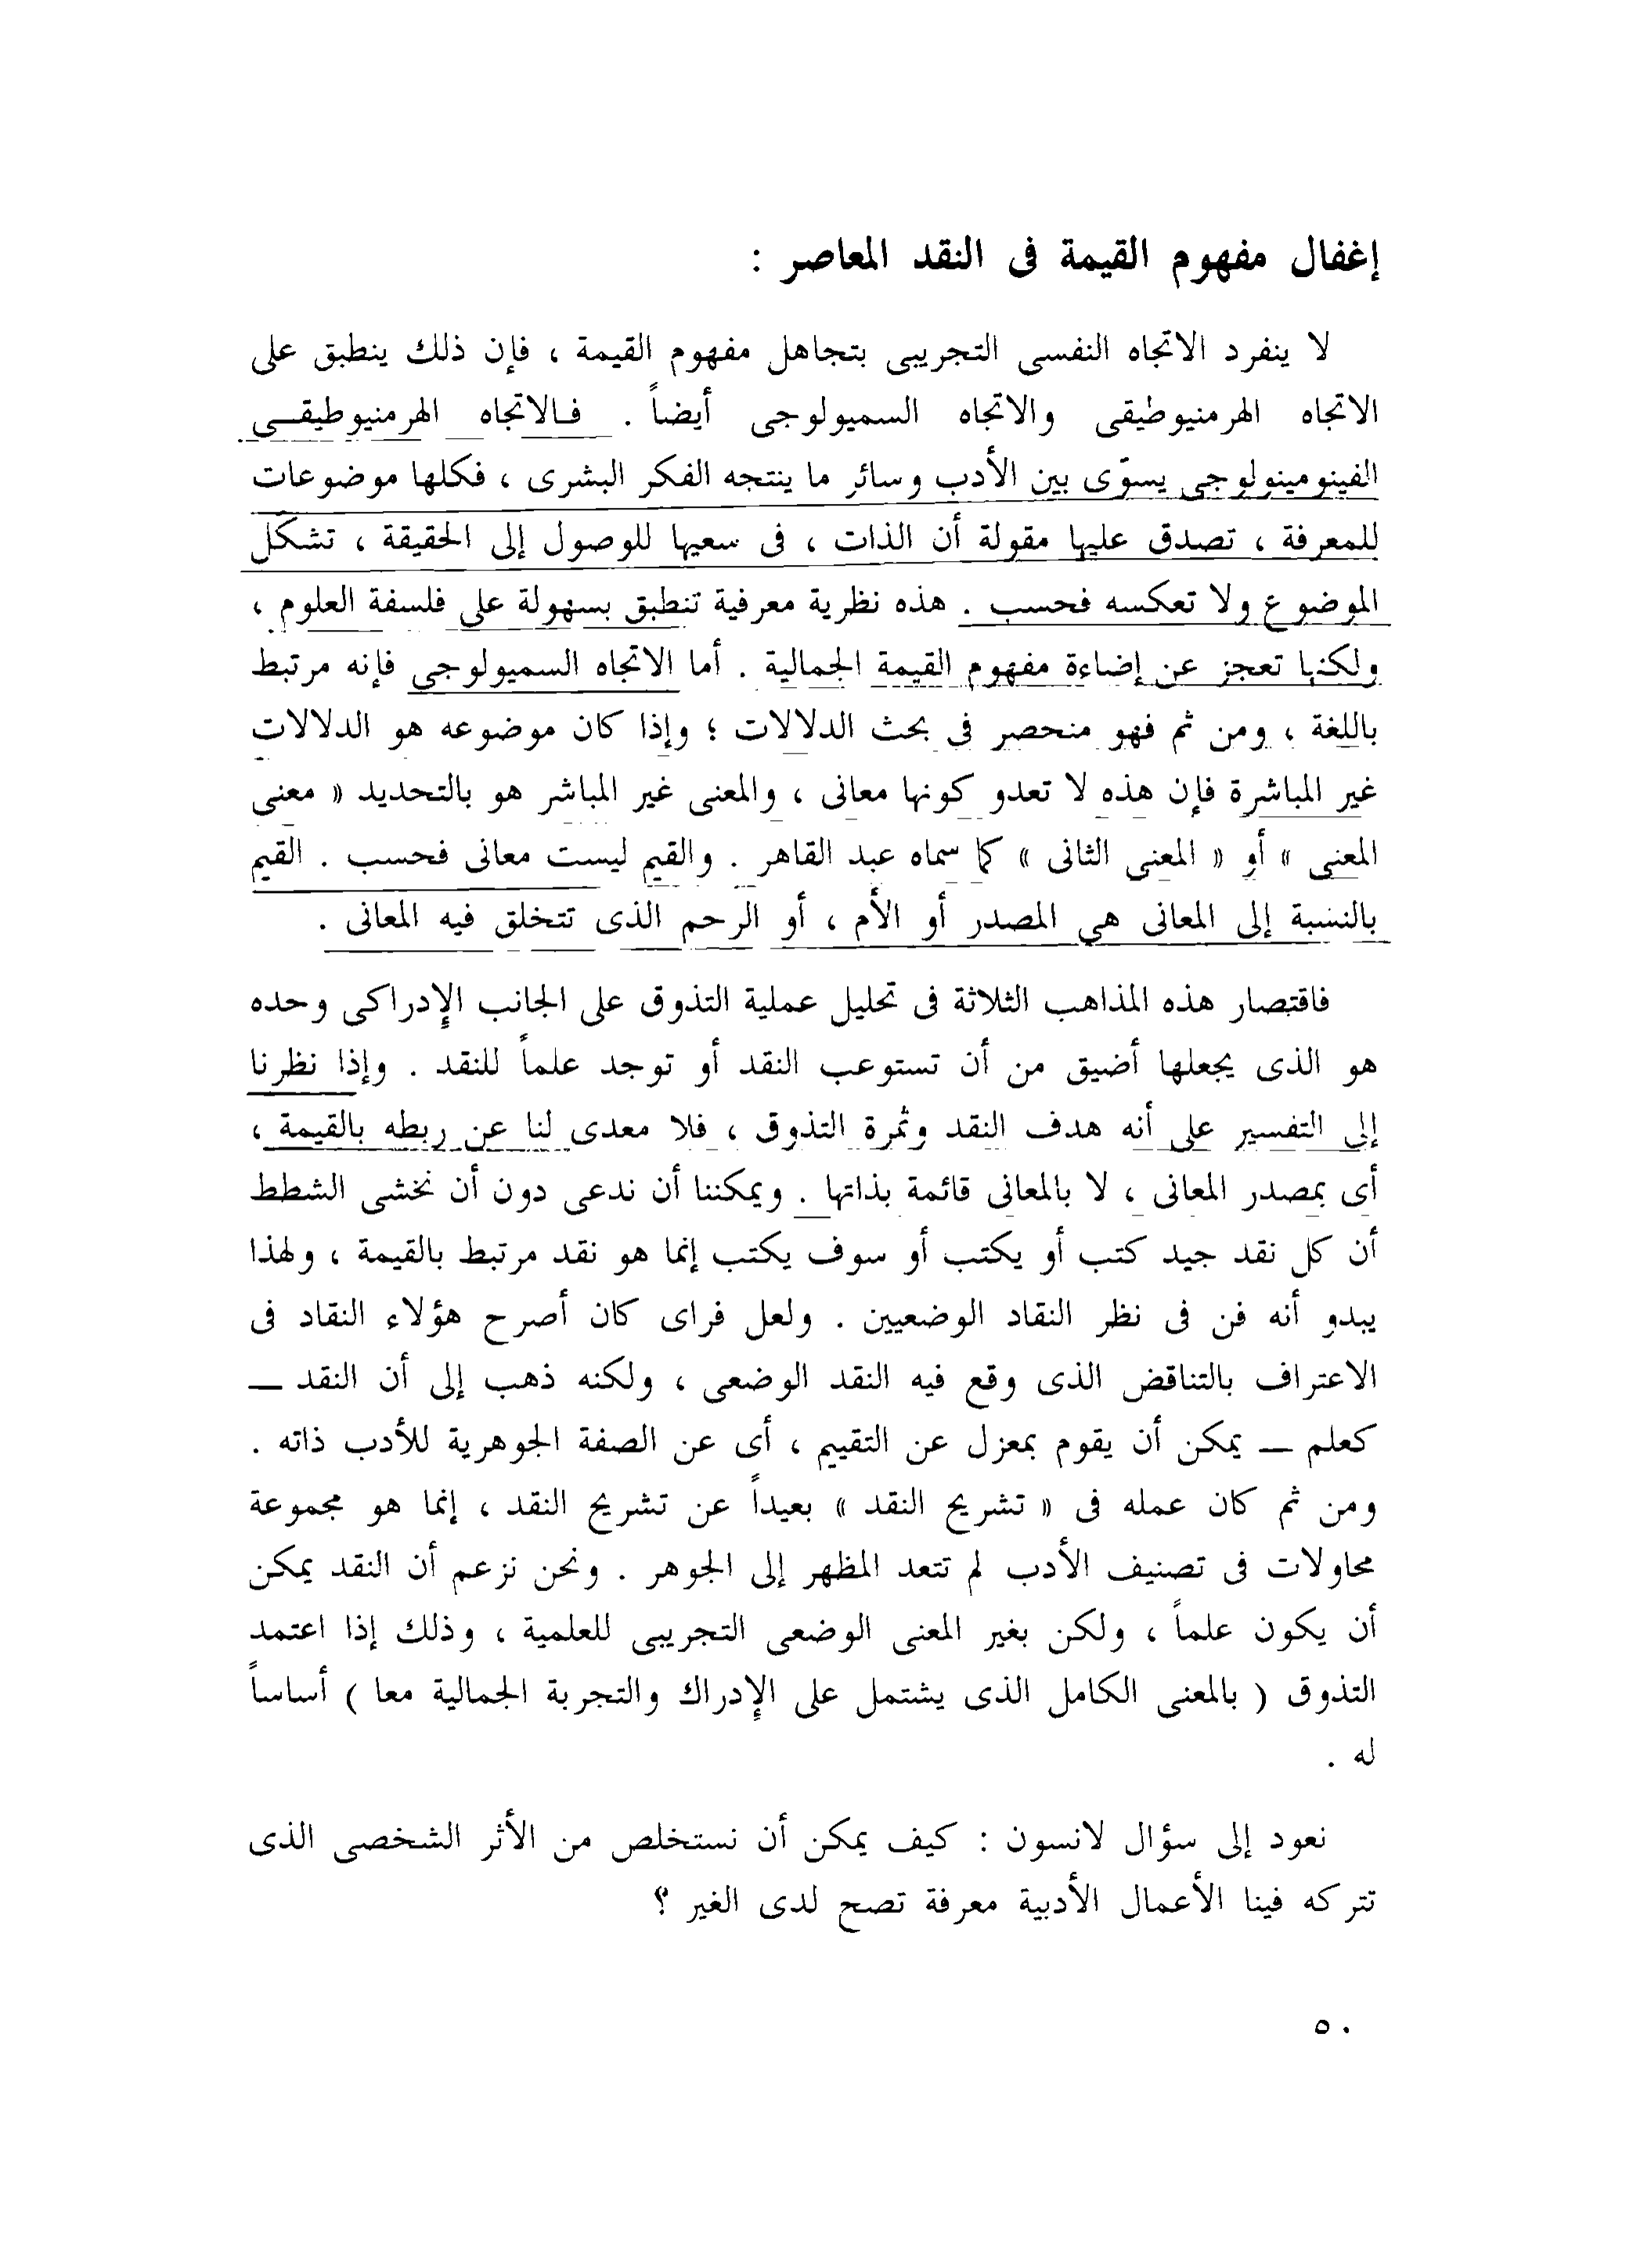 إغفال مفهوم القيمة فى النقد المعاصر :
لا ينفرد الاتجاه النفسى التجريبى بتجاهل مفهوم القيمة ، فإن ذلك ينطبق على
الاتجاه الهرمنيوطيقى والاتجاه السميولوجى أيضاً . فالاتجاه الهرمنيوطيقى
الفينومينولوجى يسوّى بين الأدب وسائر ما ينتجه الفكر البشرى ، فكلها موضوعات
للمعرفة ، تصدق عليها مقولة أن الذات ، فى سعيها للوصول إلى الحقيقة ، تشكل
الموضوع ولا تعكسه فحسب . هذه نظرية معرفية تنطبق بسهولة على فلسفة العلوم ،
ولكنها تعجز عن إضاءة مفهوم القيمة الجمالية . أما الاتجاه السميولوجى فإنه مرتبط
باللغة ، ومن ثم فهو منحصر فى بحث الدلالات ؛ وإذا كان موضوعه هو الدلالات
غير المباشرة فإن هذه لا تعدو كونها معانى ، والمعنى غير المباشر هو بالتحديد « معنى
المعنى » أو « المعنى الثانى » كما سماه عبد القاهر . والقيم ليست معانى فحسب . القيم
بالنسبة إلى المعانى هى المصدر أو الأم ، أو الرحم الذى تتخلق فيه المعانى .
فاقتصار هذه المذاهب الثلاثة فى تحليل عملية التذوق على الجانب الإدراكى وحده
هو الذى يجعلها أضيق من أن تستوعب النقد أو توجد علماً للنقد . وإذا نظرنا
إلى التفسير على أنه هدف النقد وثمرة التذوق ، فلا معدى لنا عن ربطه بالقيمة ،
أى بمصدر المعانى ، لا بالمعانى قائمة بذاتها . ويمكننا أن ندعى دون أن نخشى الشطط
أن كل نقد جيد كتب أو يكتب أو سوف يكتب إنما هو نقد مرتبط بالقيمة ، ولهذا
يبدو أنه فن فى نظر النقاد الوضعيين . ولعل فراى كان أصرح هؤلاء النقاد فى
الاعتراف بالتناقض الذى وقع فيه النقد الوضعى ، ولكنه ذهب إلى أن النقد —
كعلم — يمكن أن يقوم بمعزل عن التقييم ، أى عن الصفة الجوهرية للأدب ذاته .
ومن ثم كان عمله فى « تشريح النقد » بعيداً عن تشريح النقد ، إنما هو مجموعة
محاولات فى تصنيف الأدب لم تتعد المظهر إلى الجوهر . ونحن نزعم أن النقد يمكن
أن يكون علماً ، ولكن بغير المعنى الوضعى التجريبى للعلمية ، وذلك إذا اعتمد
التذوق ( بالمعنى الكامل الذى يشتمل على الإدراك والتجربة الجمالية معا ) أساساً
له .
نعود إلى سؤال لانسون : كيف يمكن أن نستخلص من الأثر الشخصى الذى
تتركه فينا الأعمال الأدبية معرفة تصح لدى الغير ؟
٥٠